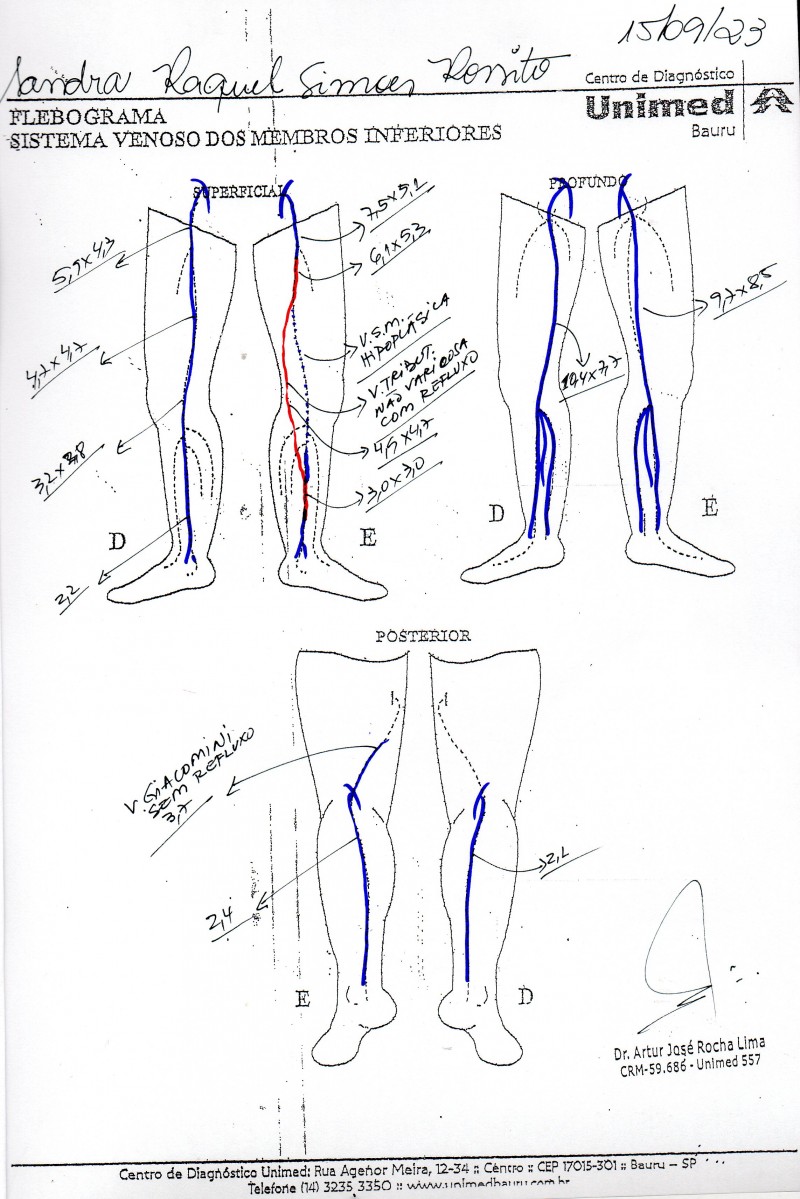 15/09/23
Sandra Raquel Simoes Rossito
Centro de Diagnóstico
Unimed
Bauru
FLEBOGRAMA
SISTEMA VENOSO DOS MEMBROS INFERIORES
SUPERFICIAL
PROFUNDO
5,9x4,3
7,5x5,1
6,1x5,3
9,7x8,5
V.S.M.
HIPOPLÁSICA
4,7x4,7
V.TRIBUT.
NÃO VARICOSA
COM REFLUXO
10,4x7,7
4,9x4,7
3,2x2,8
3,0x3,0
D
E
D
E
2,2
POSTERIOR
V. GIACOMINI
SEM REFLUXO
3,7
2,4
E
D
Dr. Artur José Rocha Lima
CRM-59.686 - Unimed 557
Centro de Diagnóstico Unimed: Rua Agenor Meira, 12-34 :: Centro :: CEP 17015-301 :: Bauru – SP
Telefone (14) 3235 3350 :: www.unimedbauru.com.br